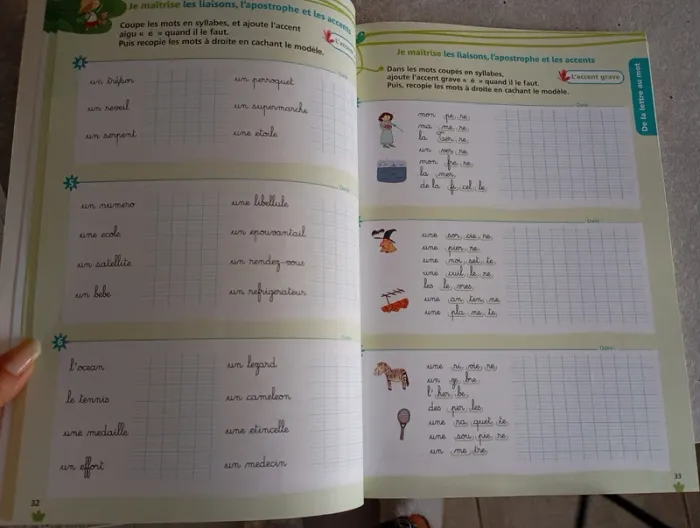 Je maîtrise les liaisons, l'apostrophe et les accents
Coupe les mots en syllabes, et ajoute l'accent
aigu « é » quand il le faut.
Puis recopie les mots à droite en cachant le modèle.
4
un trepon un perroquet
un reveil un supermarche
un serpent une etoile
5
un numero une libellule
une ecole un epouvantail
un satellite un rendez-vous
un bebe un refrigerateur
6
l'ocean un lezard
le tennis un cameleon
une medaille une etincelle
un effort un medecin
32
Je maîtrise les liaisons, l'apostrophe et les accents
Dans les mots coupés en syllabes,
ajoute l'accent grave « è » quand il le faut.
Puis, recopie les mots à droite en cachant le modèle.
L'accent grave
De la lettre au mot
Date
mon pe re
ma me re
la
un ver re
mon fre re
la mer
de la fi cel le
Date
une sor cie re
une pier re
une noi set te
une cuil le re
les le vres
une an ten ne
une pla ne te
Date
une ri vie re
un ze bre
l' her be
des per les
une ra quet te
une sou pie re
un me tre
33